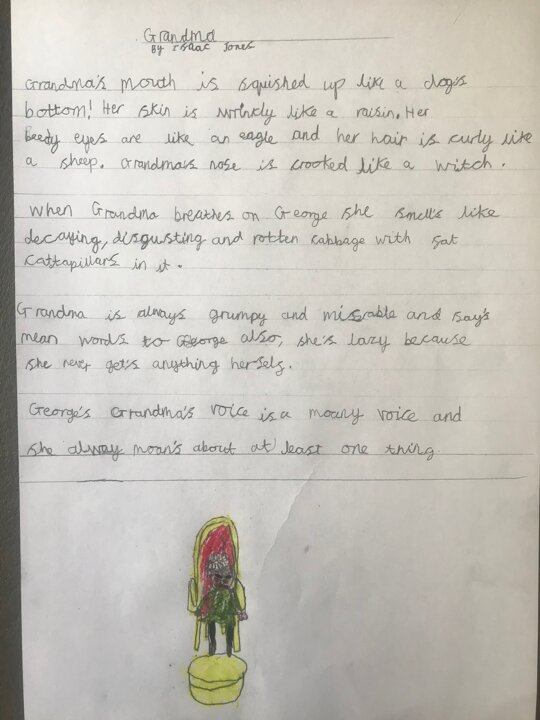 Grandma
By Isaac Jones
Grandma's mouth is squished up like a dog's
bottom! Her skin is wrinkly like a raisin. Her
beedy eyes are like an eagle and her hair is curly like
a sheep. Grandma's nose is crooked like a witch.
When Grandma breathes on George she smell's like
decaying, disgusting and rotten cabbage with fat
cattapillars in it.
Grandma is always grumpy and misrable and say's
mean words to George also, she's lazy because
she never get's anything herself.
George's Grandma's voice is a moany voice and
she alway moan's about at least one thing